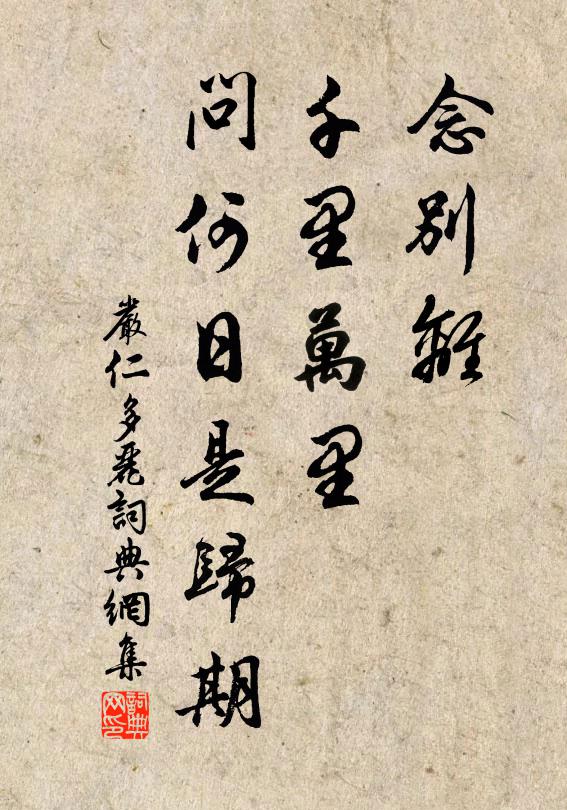 念別離
千里萬里
問何日是歸期
嚴仁多麗詞典網集
詞典网印